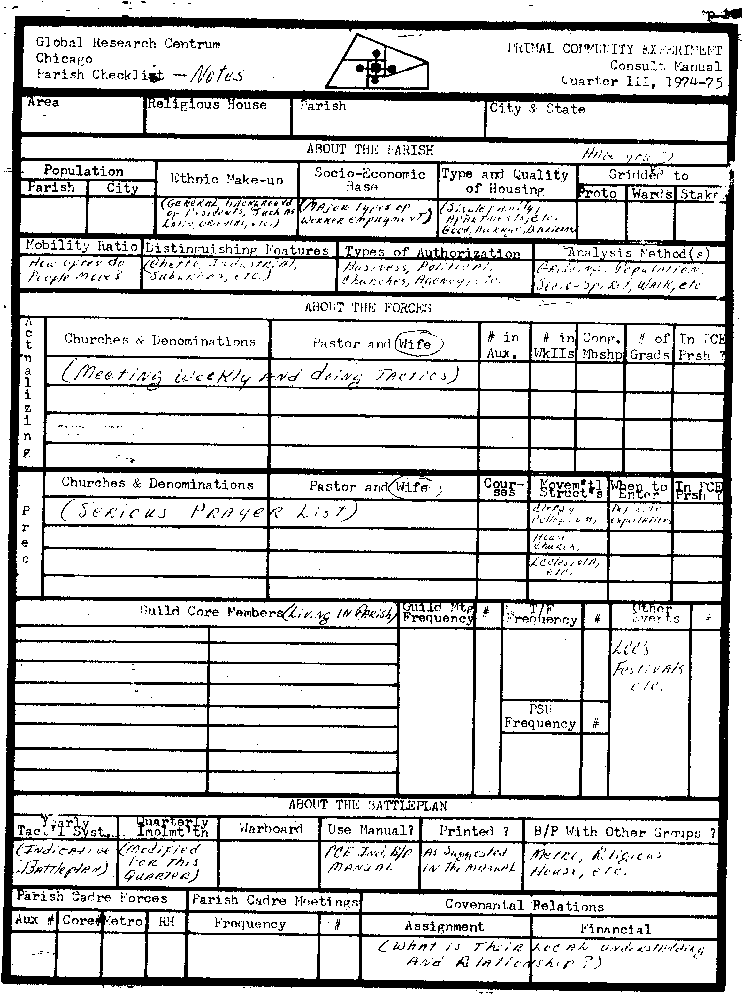 Global Research Centrum
Chicago
Parish Checklist — Notes
PRIMAL COMMUNITY EXPERIMENT
Consult Manual
Quarter III, 1974-75
Area
Religious House
Parish
City & State
ABOUT THE PARISH
Population
Parish City
Ethnic Make-up
Socio-Economic
Base
Type and Quality
of Housing
Gridded to
Proto Wards Stake
(General background
of residents, such as
(Major types of
worker employment)
(Single family,
Apartments, etc.
Mobility Ratio
Distinguishing Features
Types of Authorization
Analysis Method(s)
How often do
People move?
(Ghetto, Industrial,
Suburban, etc.)
Business, Political,
Churches, Agency, etc.
ABOUT THE FORCES
Actualizing
Churches & Denominations
Pastor and Wife
# in
Aux.
# in
WkIIs
Cong.
Mbshp
# of
Grads
In PCE
Prsh ?
(Meeting weekly and doing Tactics)
Prec
Churches & Denominations
Pastor and Wife
Cour-
ses
Movem'tl
Struct's
When to
Enter
In PCE
Prsh ?
(Serious Prayer List)
Church,
etc.
Guild Core Members (Living in Parish)
Guild Mtg
Frequency
#
T/F
Frequency
#
Other
Events
#
Festivals
etc.
PSU
Frequency
#
ABOUT THE BATTLEPLAN
Yearly
Tac'l Syst.
Quarterly
Implmt'tn
Warboard
Use Manual?
Printed ?
B/P With Other Groups ?
(Indicative
Battleplan)
(Modified
for this
Quarter)
PCE Ind. B/P
Manual
As suggested
in the manual
Metro, Religious
House, etc.
Parish Cadre Forces
Parish Cadre Meetings
Covenantal Relations
Aux # Core Metro RH
Frequency
#
Assignment
Financial
(What is their local understanding
and relationship?)